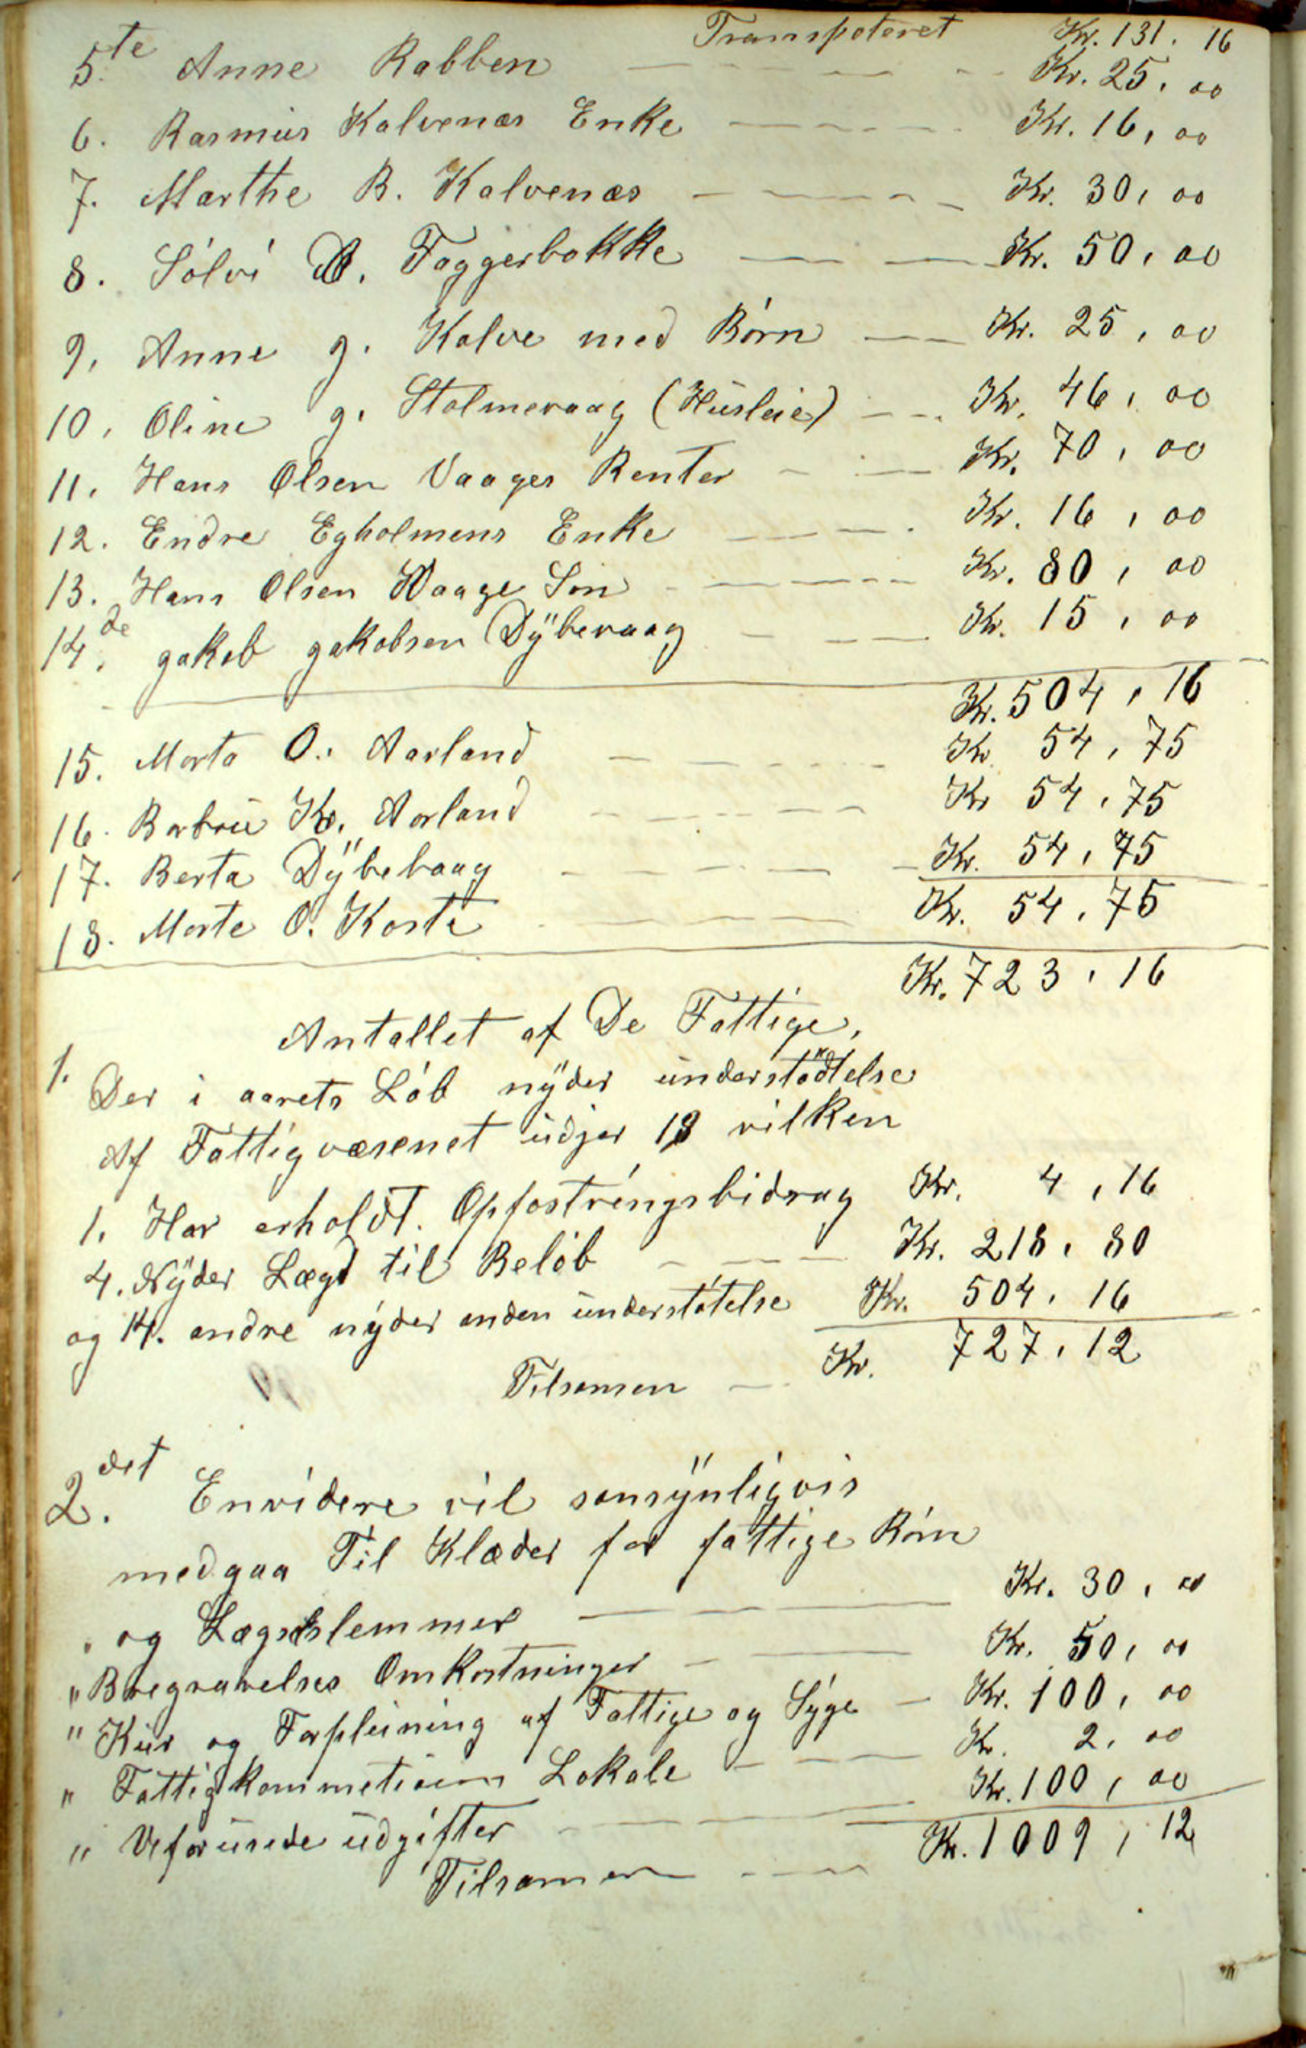 Transpoteret Kr. 131. 16
5.te Anne Rabben Kr. 25, 00
6. Rasmus Kalvenæs Enke Kr. 16, 00
7. Marthe B. Kalvenæs Kr. 30, 00
8. Sólvi Faggerbakke Kr. 50, 00
9, Anne g. Kalve med Bórn Kr. 25, 00
10, Oline g. Stolmevaag (Husleie) Kr. 46, 00
11, Hans Olsen Vaages Renter Kr. 70, 00
12. Endre Egholmens Enke Kr. 16, 00
13. Hans Olsen Waage Sön Kr. 80, 00
14.de gakob gakobsen Dÿbevaag Kr. 15, 00
Kr. 504, 16
15. Marta O. Aarland Kr 54, 75
16. Barbru Kr. Aarland Kr 54, 75
17. Berta Dÿbebaag Kr. 54, 75
18. Marte O. Korte Kr. 54, 75
Kr. 723, 16
Antallet af De Fattige,
1. Der i aarets Lób nÿder
Af Fattigvæsenet udjör 18 vilken
1. Har erholdt. Opfostringsbidrag Kr. 4, 16
4. Nÿder Lægd til Belób Kr. 218, 80
og 14. andre nÿder anden understótelse Kr. 504, 16
Tilsamen Kr. 727, 12
2.det Envidere vil sansÿnligvis
medgaa Til Klæder for fattige Bórn
og Lægdslemmer Kr. 30, 00
" Begravelses Omkostninger Kr. 50, 00
" Kur og Forpleining af Fattige og Sÿge Kr. 100, 00
" Fattigkommetionen Lokale Kr. 2, 00
" Uforusede udgifter Kr. 100, 00
Tilsamen Kr. 1009, 12